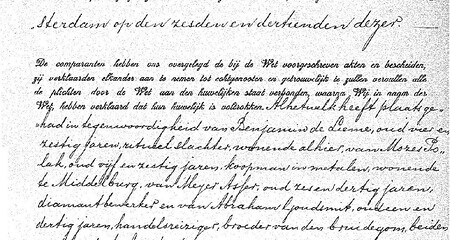 sterdam op den zesden en dertienden dezer.
De comparanten hebben ons overgelegd de bij de Wet voorgeschreven akten en bescheiden,
zij verklaarden elkander aan te nemen tot echtgenooten en getrouwelijk te zullen vervullen alle
de plichten door de Wet aan den huwelijken staat verbonden, waarna Wij in naam der
Wet, hebben verklaard dat hun huwelijk is voltrokken. Al hetwelk heeft plaats ge-
had in tegenwoordigheid van Benjamin de Lieme, oud vier en
zestig jaren, ritueel slachter, wonende alhier, van Mozes Po-
lak, oud vijf en zestig jaren, koopman in metalen, wonende
te Middelburg, van Meyer Asser, oud zes en dertig jaren,
diamantbewerker en van Abraham Goudsmit, oud een en
dertig jaren, handelsreiziger, broeder van den bruidegom, beiden